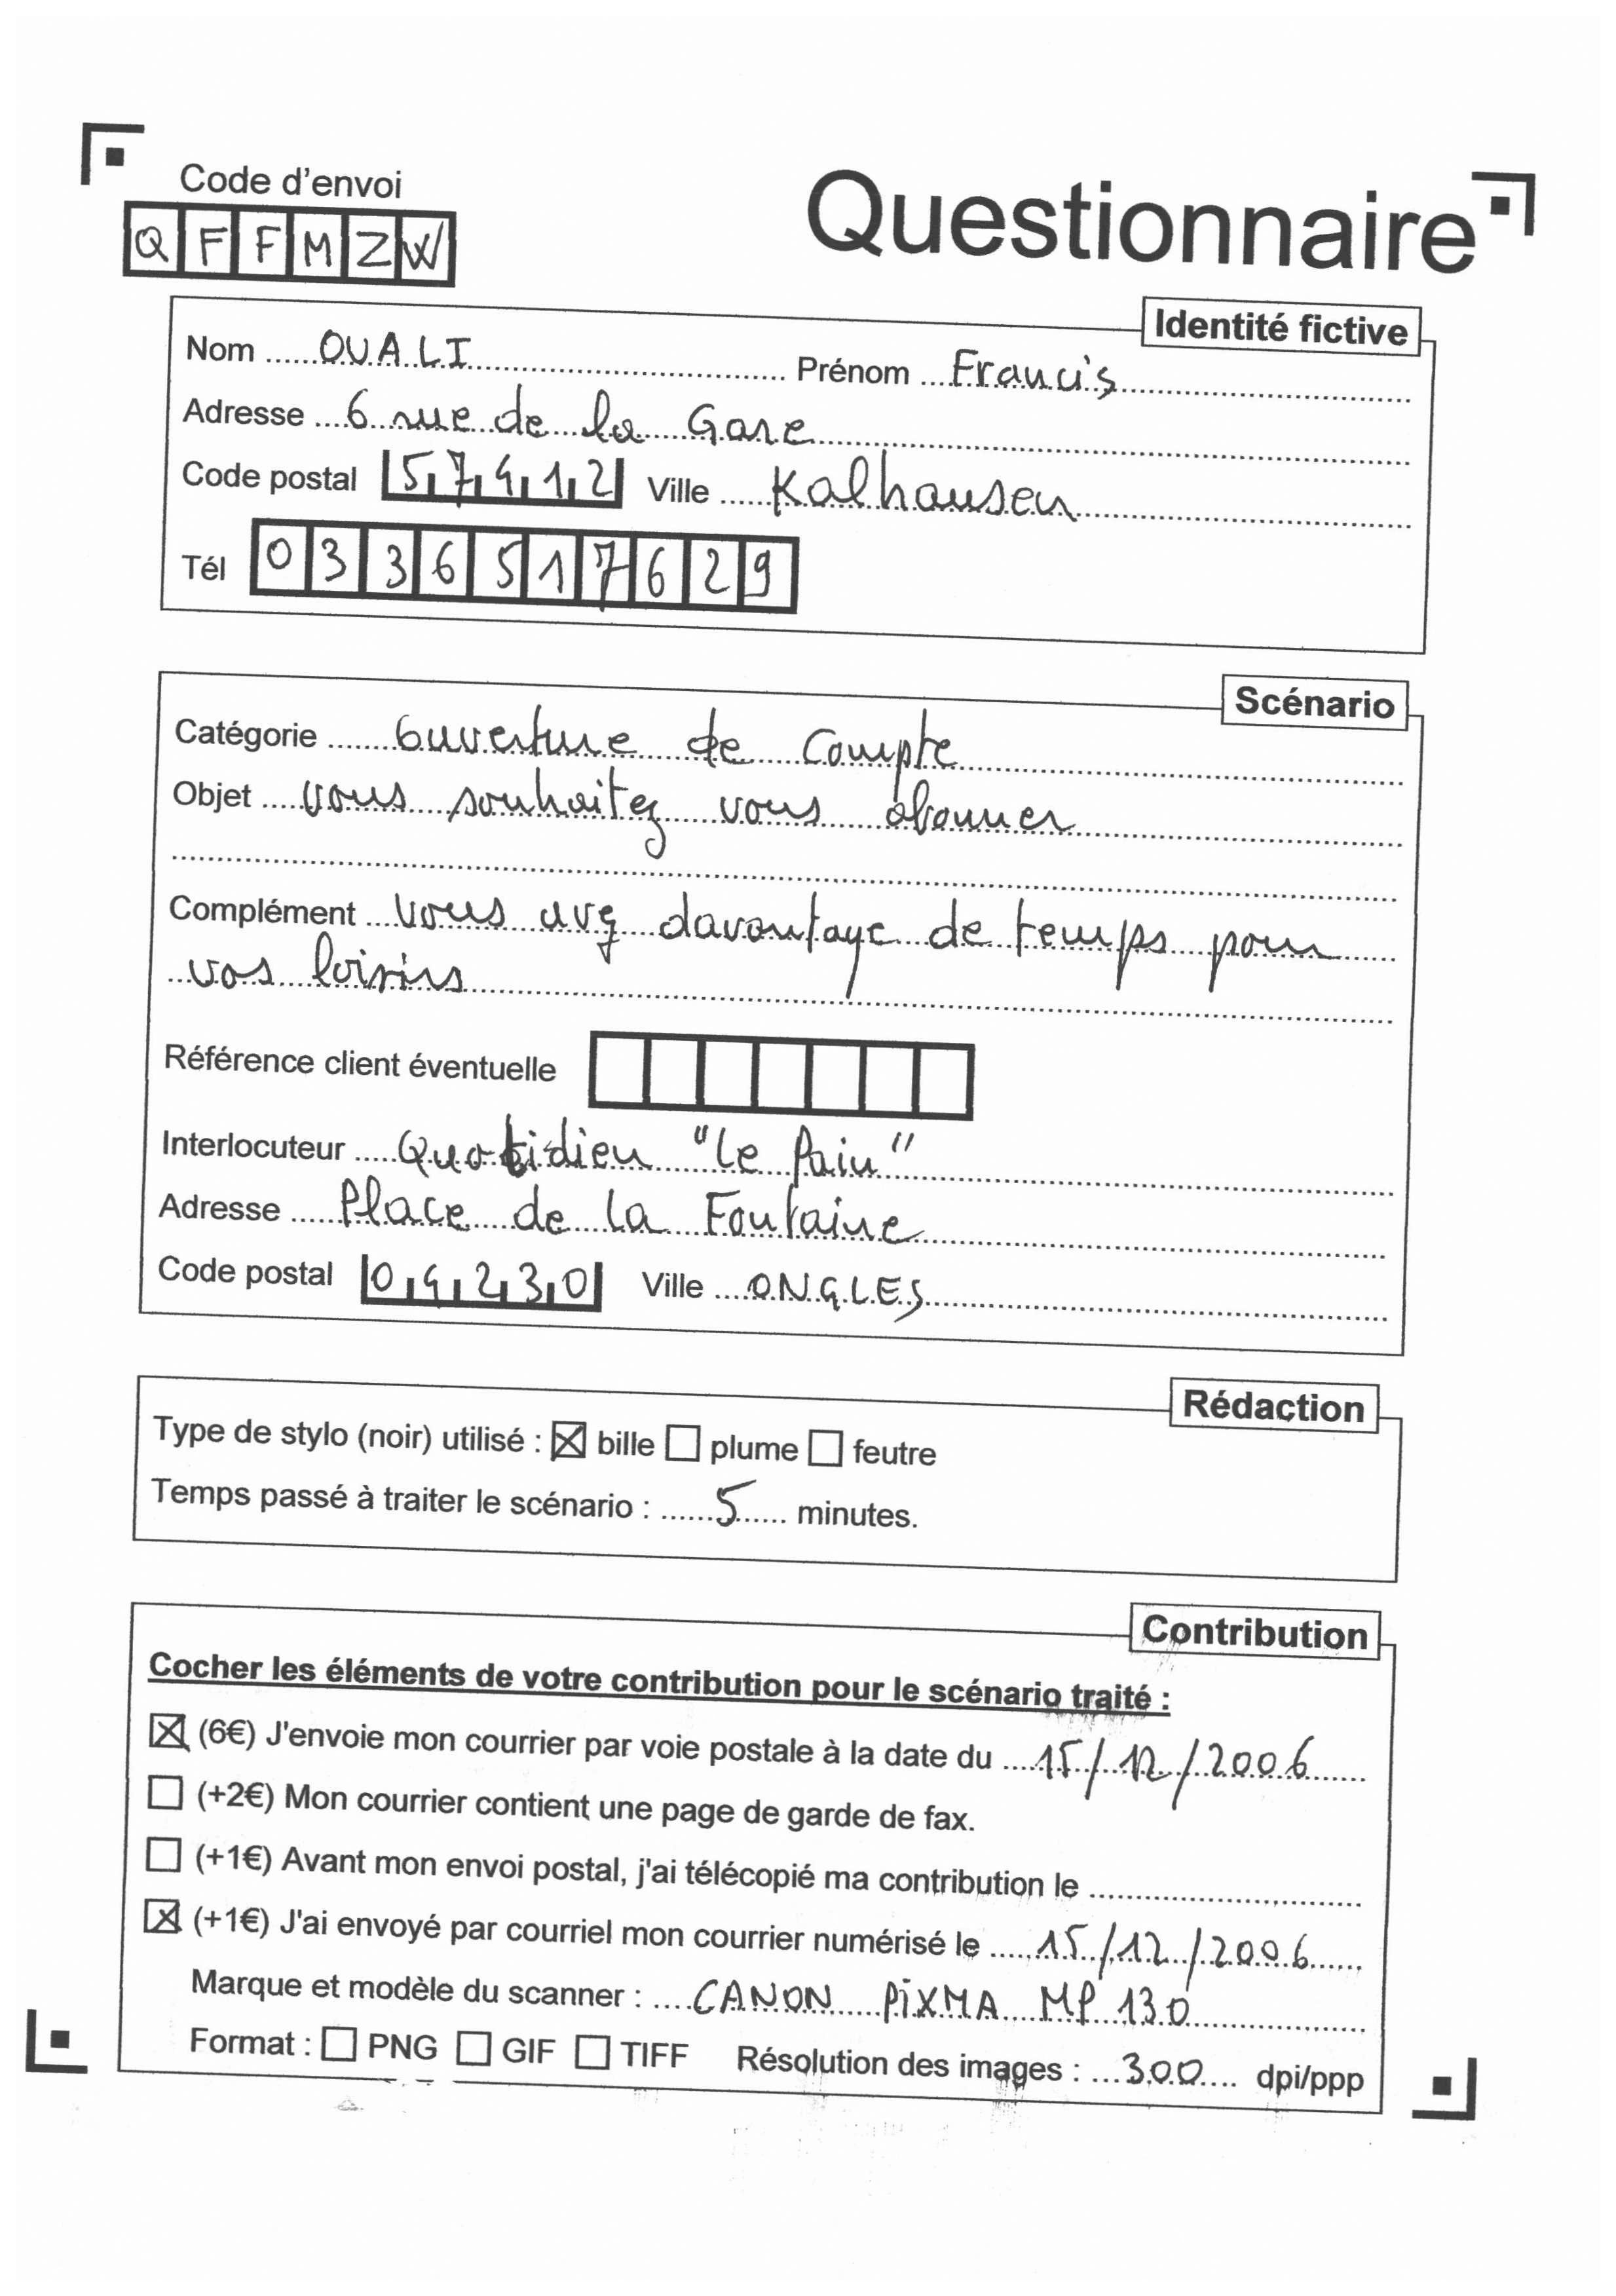 Code d'envoi
QFFMZW
Questionnaire
Identité fictive
Nom OUALI Prénom Francis
Adresse 6 rue de la Gare
Code postal 57412 Ville Kalhausen
Tél 0336517629
Scénario
Catégorie Ouverture de Compte
Objet Vous souhaitez vous abonner
Complément Vous avez davantage de temps pour
vos loisirs
Référence client éventuelle
Interlocuteur Quotidien "Le Pain"
Adresse Place de la Fontaine
Code postal 04230 Ville ONGLES
Rédaction
Type de stylo (noir) utilisé : ☒ bille ☐ plume ☐ feutre
Temps passé à traiter le scénario : 5 minutes.
Contribution
Cocher les éléments de votre contribution pour le scénario traité :
☒ (6€) J'envoie mon courrier par voie postale à la date du 15/12/2006
☐ (+2€) Mon courrier contient une page de garde de fax.
☐ (+1€) Avant mon envoi postal, j'ai télécopié ma contribution le
☒ (+1€) J'ai envoyé par courriel mon courrier numérisé le 15/12/2006
Marque et modèle du scanner : CANON PiXMA MP 130
Format : ☐ PNG ☐ GIF ☐ TIFF Résolution des images : 300 dpi/ppp